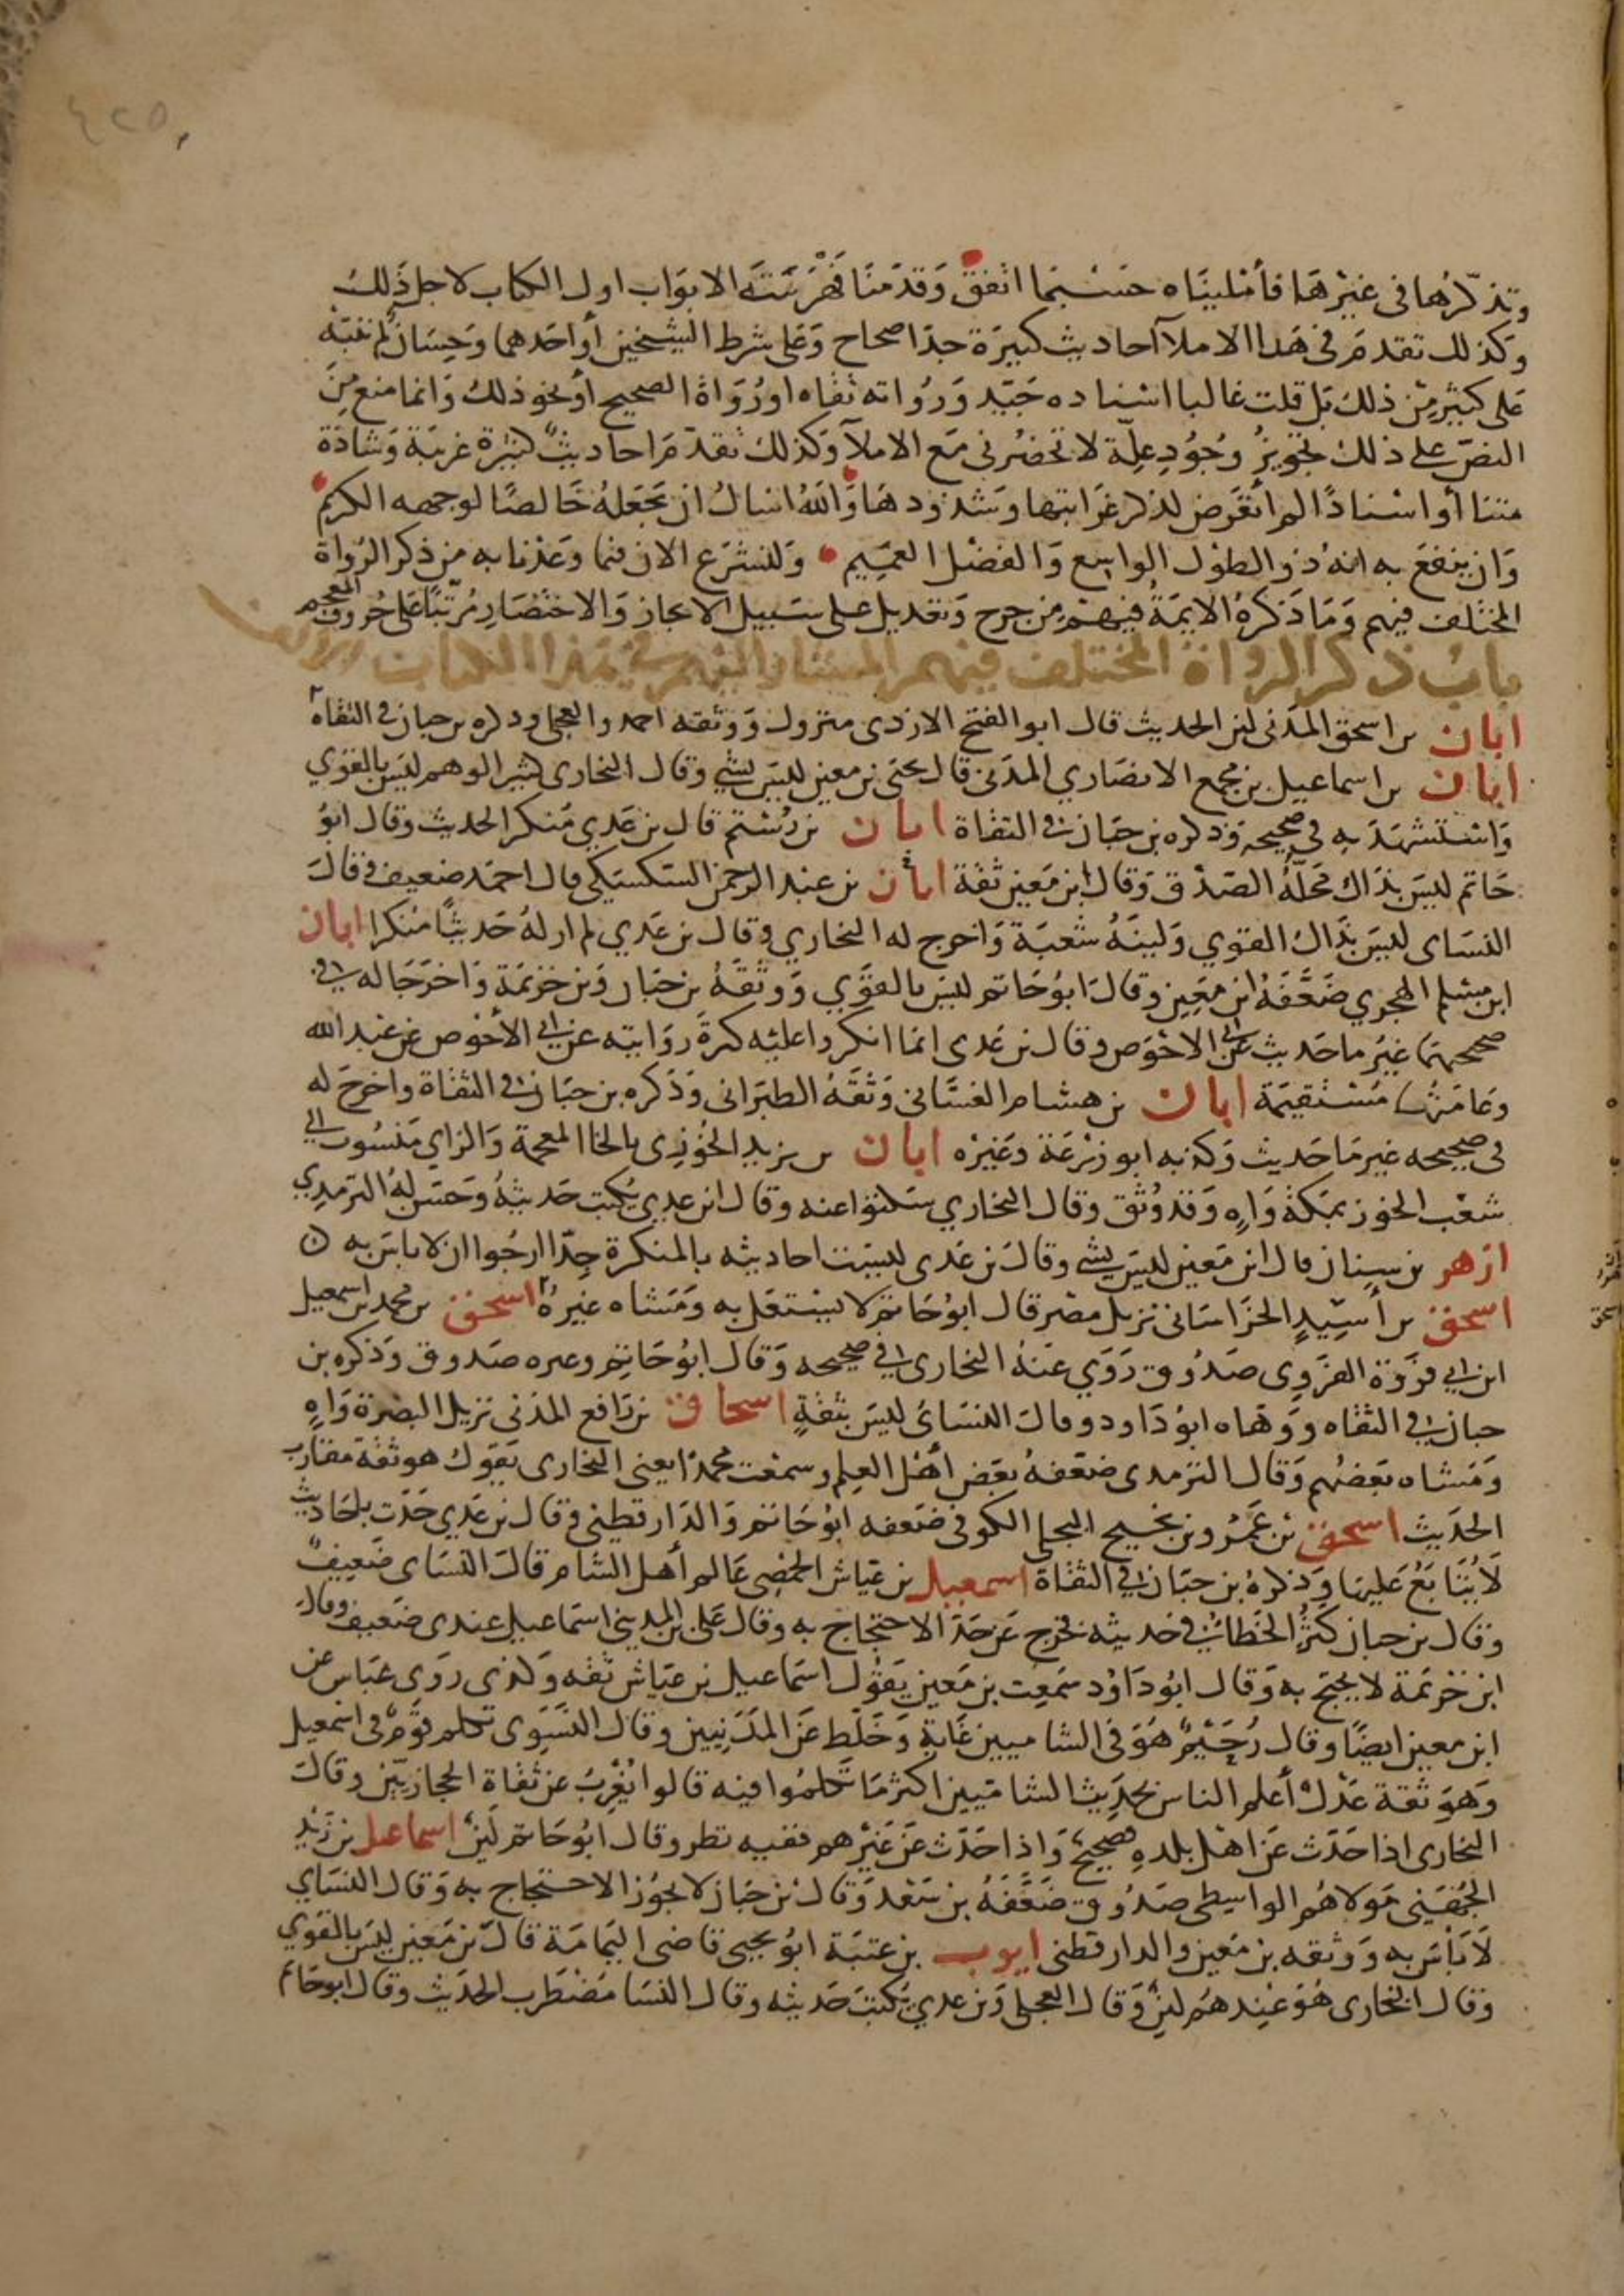 وتذكرها في غيرها فأمليناه حسبما اتفق وقدمنا فهرسته الابواب اول الكتاب لاجل ذلك
وكذلك تقدم في هذا الاملاآ احاديث كثيرة جدا صحاح وعلى شرط الشيخين أو احدهما وحسان لم ننبه
على كثير من ذلك بل قلت غالبا اسناده جيد ورواته ثقاه او رواة الصحيح أو نحو ذلك وانما منع من
النص على ذلك تجويز وجود علة لا تحضرني مع الاملآ وكذلك تقدم احاديث كثيرة غريبة وشاذة
متنا أو اسنادا لم اتعرض لذكر غرابتها وشذوذها والله اسال ان يجعله خالصا لوجهه الكريم
وان ينفع به انه ذو الطول الواسع والفضل العميم ولنشرع الان فيما وعدنا به من ذكر الرواة
المختلف فيهم وما ذكره الايمة فيهم من جرح وتعديل على سبيل الايجاز والاختصار مرتبا على حروف المعجم
باب ذكر الرواة المختلف فيهم المشار اليهم في هذا الكتاب
ابان بن اسحق المدني لين الحديث قال ابو الفتح الازدي متروك ووثقه احمد والعجلي وذكره بن حبان في الثقاه
ابان بن اسماعيل بن مجمع الانصاري المدني قال يحيى بن معين ليس بشي وقال البخاري كثير الوهم ليس بالقوي
واستشهد به في صحيحه وذكره بن حبان في الثقاة ابان بن رستم قال بن عدي منكر الحديث وقال ابو
حاتم ليس بذاك محله الصدق وقال ابن معين ثقة ابان بن عبد الرحمن السكسكي قال احمد ضعيف وقال
النساى ليس بذاك القوي ولينه شعبة واخرج له البخاري وقال بن عدي لم ار له حديثا منكرا ابان
ابن مسلم الهجري ضعفه ابن معين وقال ابو حاتم ليس بالقوي ووثقه بن حبان وبن خزيمة واخرجا له في
صحيحهما غير ما حديث عن ابي الاحوص وقال بن عدي انما انكروا عليه كثرة روايته عن ابي الأحوص عن عبد الله
وعامتها مستقيمة ابان بن هشام الغساني وثقه الطبراني وذكره بن حبان في الثقاة واخرج له
في صحيحه غير ما حديث وكذبه ابو زرعة وغيره ابان بن يزيد الخوزي بالخا المعجمة والزاي منسوب الى
شعب الخوز بمكة واه وقد وثق وقال البخاري سكتوا عنه وقال ابن عدي يكتب حديثه وحسن له الترمذي
ازهر بن سنان قال ابن معين ليس بشي وقال بن عدي ليست احاديثه بالمنكرة جدا ارجوا ان لا باس به
اسحق بن أسيد الخراساني نزيل مصر قال ابو حاتم لا يشتغل به ومشاه غيره اسحق بن محمد بن اسمعيل
ابن ابي فروة الفروي صدوق روى عنه البخاري في صحيحه وقال ابو حاتم وغيره صدوق وذكره بن
حبان في الثقاه ووهاه ابو داود وقال النسائ ليس بثقة اسحاق بن رافع المدني نزيل البصرة واه
ومشاه بعضهم وقال الترمذي ضعفه بعض أهل العلم وسمعت محمدا يعني البخاري يقول هو ثقة مقارب
الحديث اسحق بن عمرو بن نجيح البجلي الكوفي ضعفه ابو حاتم والدارقطني وقال بن عدي حدث باحاديث
لا يتابع عليها وذكره بن حبان في الثقاة اسمعيل بن عياش الحمصي عالم أهل الشام قال النساى ضعيف
وقال بن حبان كثر الخطا في حديثه فخرج عن حد الاحتجاج به وقال على بن المديني اسماعيل عندي ضعيف وقال
ابن خزيمة لا يحتج به وقال ابو داود سمعت بن معين يقول اسماعيل بن عياش ثقه وكذى روى عباس عن
ابن معين ايضا وقال رحيم هو في الشاميين غاية وخلط عن المدنيين وقال النسوي تكلم قوم في اسمعيل
وهو ثقة عدل أعلم الناس بحديث الشاميين اكثر ما تكلموا فيه قالوا يغرب عن ثقاة الحجازيين وقال
البخاري اذا حدث عن اهل بلده فصحيح واذا حدث عن غيرهم ففيه نظر وقال ابو حاتم لين اسماعيل بن زيد
الجهني مولاهم الواسطي صدوق ضعفه بن سعد وقال بن حبان لا يجوز الاحتجاج به وقال النساي
لا باس به ووثقه بن معين والدارقطني ايوب بن عتبة ابو يحيى قاضي اليمامة قال بن معين ليس بالقوي
وقال البخاري هو عندهم لين وقال العجلي وبن عدي يكتب حديثه وقال النسا مضطرب الحديث وقال ابو حاتم